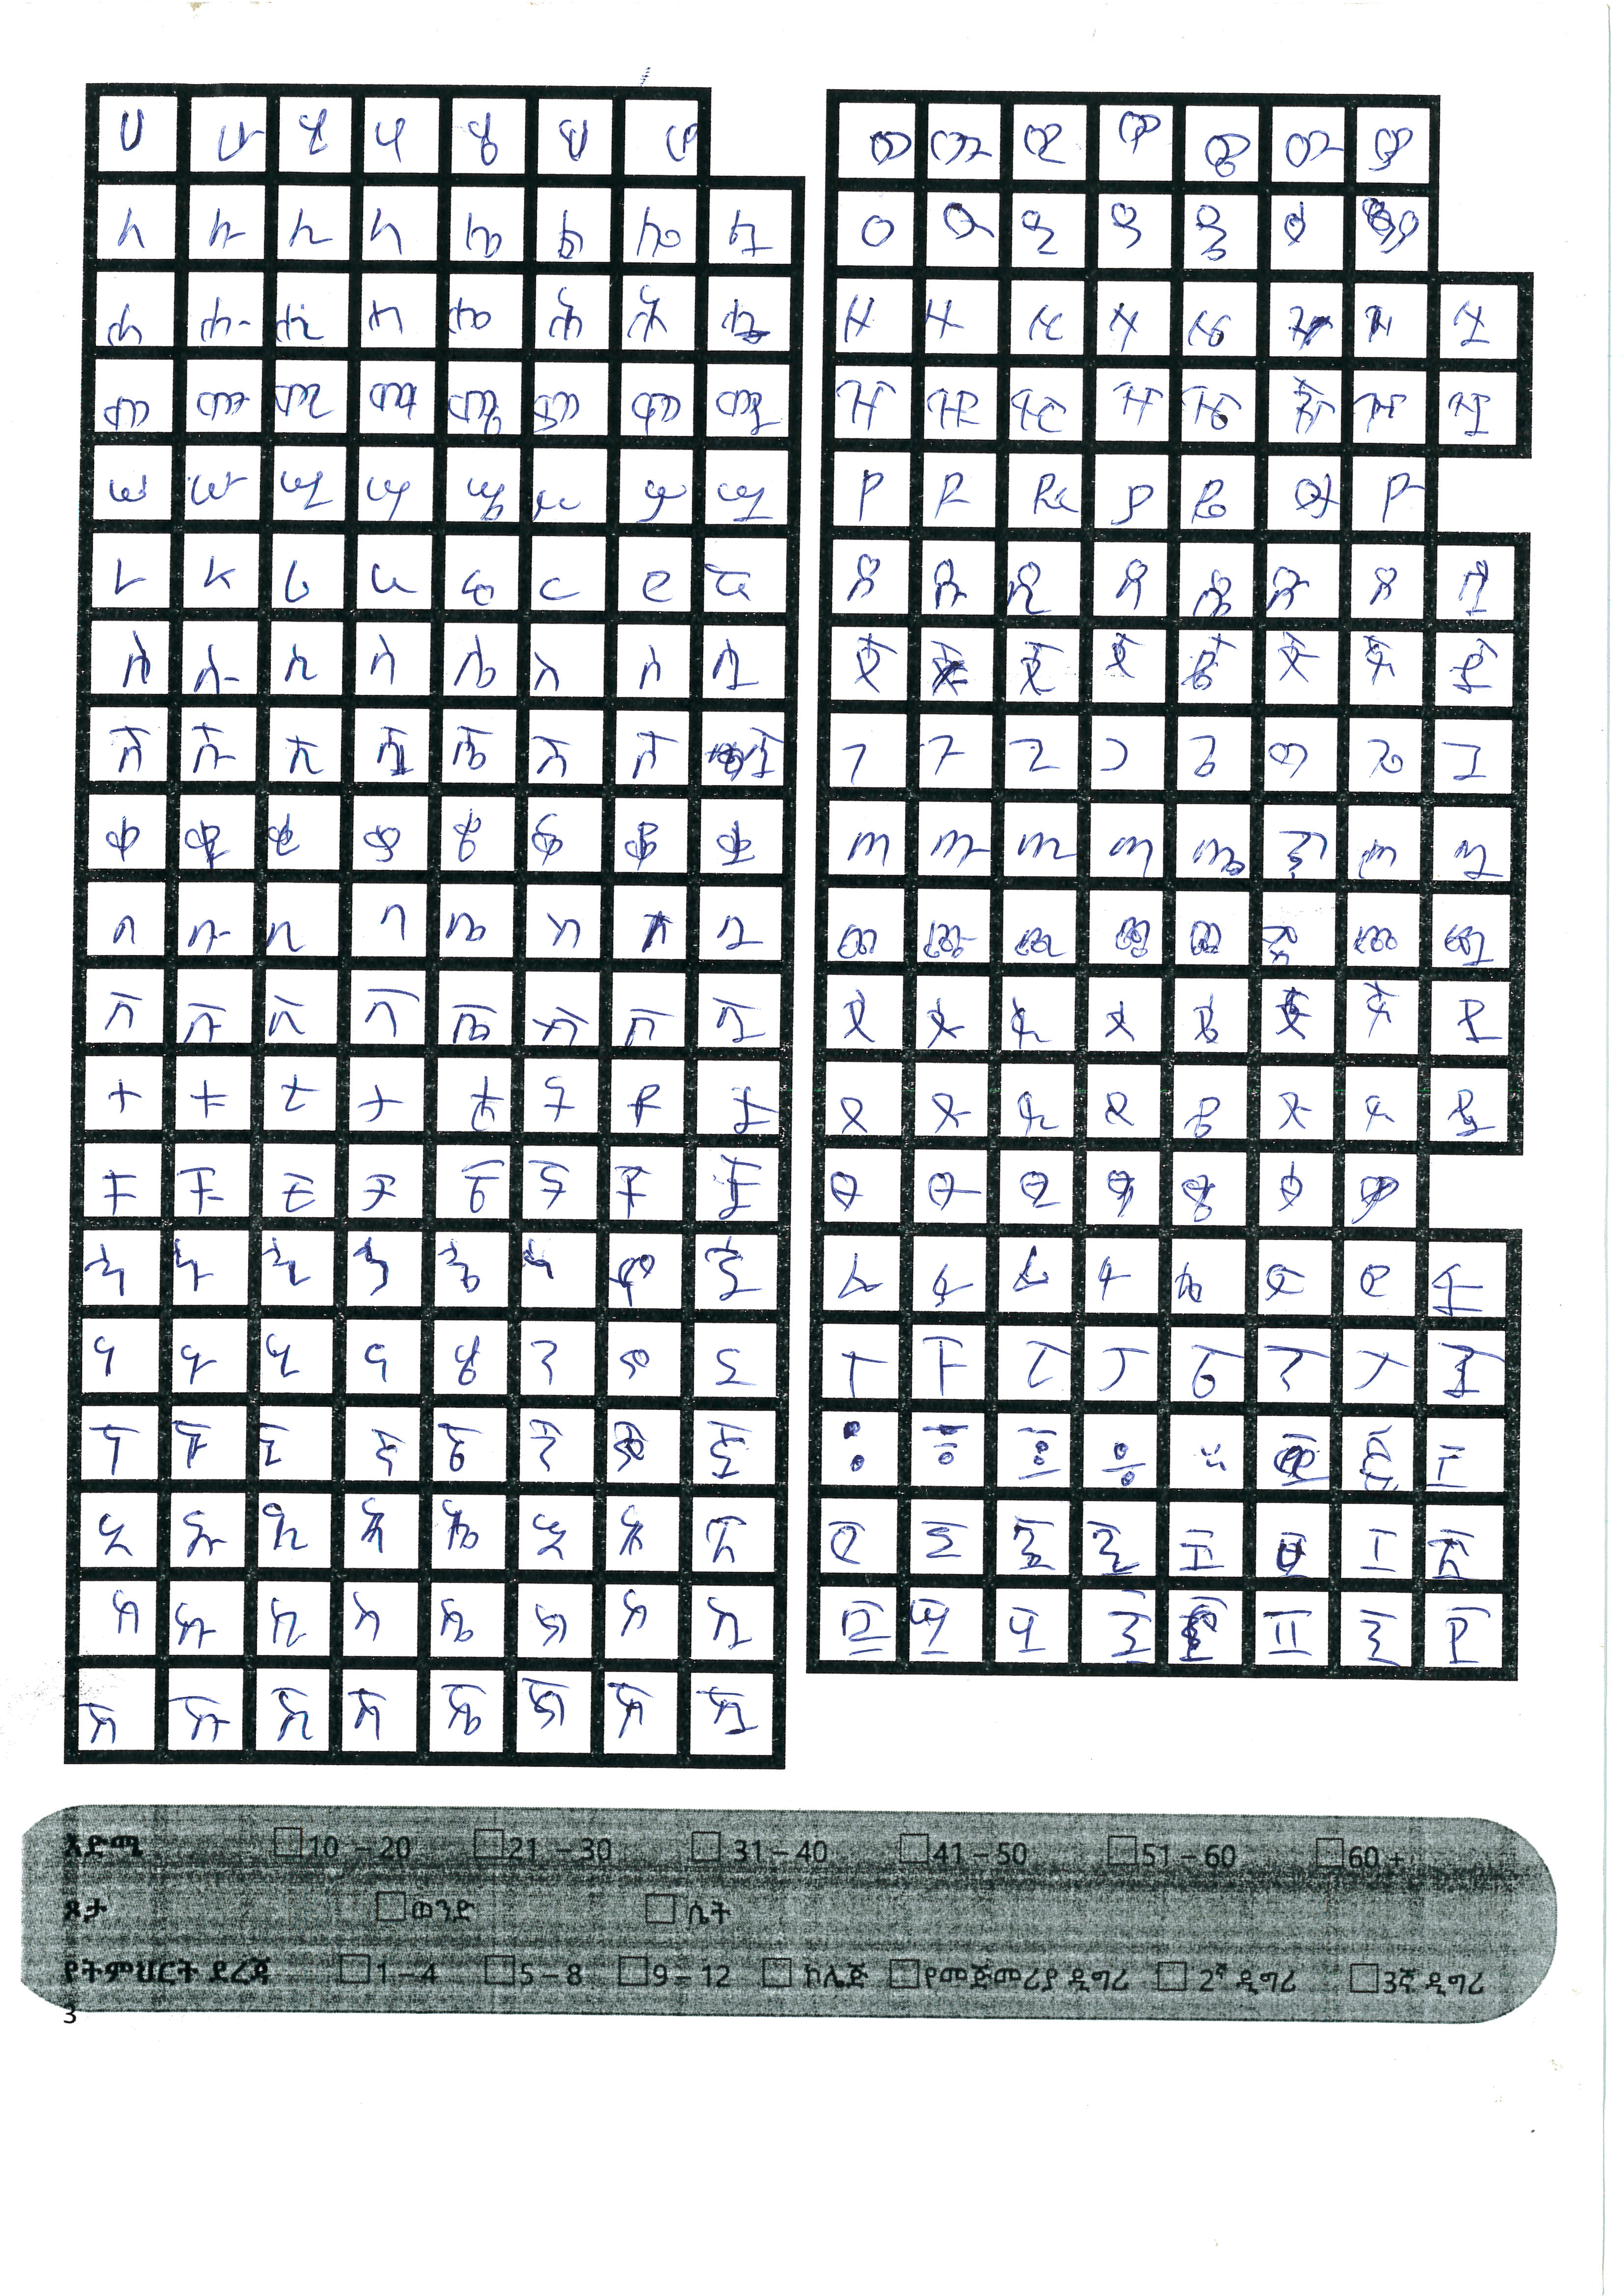 ሀ ሁ ሂ ሃ ሄ ህ ሆ
ለ ሉ ሊ ላ ሌ ል ሎ ሏ
ሐ ሑ ሒ ሓ ሔ ሕ ሖ ሗ
መ ሙ ሚ ማ ሜ ም ሞ ሟ
ሠ ሡ ሢ ሣ ሤ ሥ ሦ ሧ
ረ ሩ ሪ ራ ሬ ር ሮ ሯ
ሰ ሱ ሲ ሳ ሴ ስ ሶ ሷ
ሸ ሹ ሺ ሻ ሼ ሽ ሾ ሿ
ቀ ቁ ቂ ቃ ቄ ቅ ቆ ቋ
በ ቡ ቢ ባ ቤ ብ ቦ ቧ
ቨ ቩ ቪ ቫ ቬ ቭ ቮ ቯ
ተ ቱ ቲ ታ ቴ ት ቶ ቷ
ቸ ቹ ቺ ቻ ቼ ች ቾ ቿ
ኀ ኁ ኂ ኃ ኄ ኅ ኆ ኋ
ነ ኑ ኒ ና ኔ ን ኖ ኗ
ኘ ኙ ኚ ኛ ኜ ኝ ኞ ኟ
አ ኡ ኢ ኣ ኤ እ ኦ ኧ
ከ ኩ ኪ ካ ኬ ክ ኮ ኳ
ኸ ኹ ኺ ኻ ኼ ኽ ኾ ዃ
ወ ዉ ዊ ዋ ዌ ው ዎ
ዐ ዑ ዒ ዓ ዔ ዕ ዖ
ዘ ዙ ዚ ዛ ዜ ዝ ዞ ዟ
ዠ ዡ ዢ ዣ ዤ ዥ ዦ ዧ
የ ዩ ዪ ያ ዬ ይ ዮ
ደ ዱ ዲ ዳ ዴ ድ ዶ ዷ
ጀ ጁ ጂ ጃ ጄ ጅ ጆ ጇ
ገ ጉ ጊ ጋ ጌ ግ ጎ ጓ
ጠ ጡ ጢ ጣ ጤ ጥ ጦ ጧ
ጨ ጩ ጪ ጫ ጬ ጭ ጮ ጯ
ጰ ጱ ጲ ጳ ጴ ጵ ጶ ጷ
ጸ ጹ ጺ ጻ ጼ ጽ ጾ ጿ
ፀ ፁ ፂ ፃ ፄ ፅ ፆ
ፈ ፉ ፊ ፋ ፌ ፍ ፎ ፏ
ፐ ፑ ፒ ፓ ፔ ፕ ፖ ፗ
እድሜ 10 – 20 21 – 30 31 – 40 41 – 50 51 – 60 60 +
ጾታ ወንድ ሴት
የትምህርት ደረጃ 1 – 4 5 – 8 9 – 12 ኮሌጅ የመጀመሪያ ዲግሪ 2ኛ ዲግሪ 3ኛ ዲግሪ
3